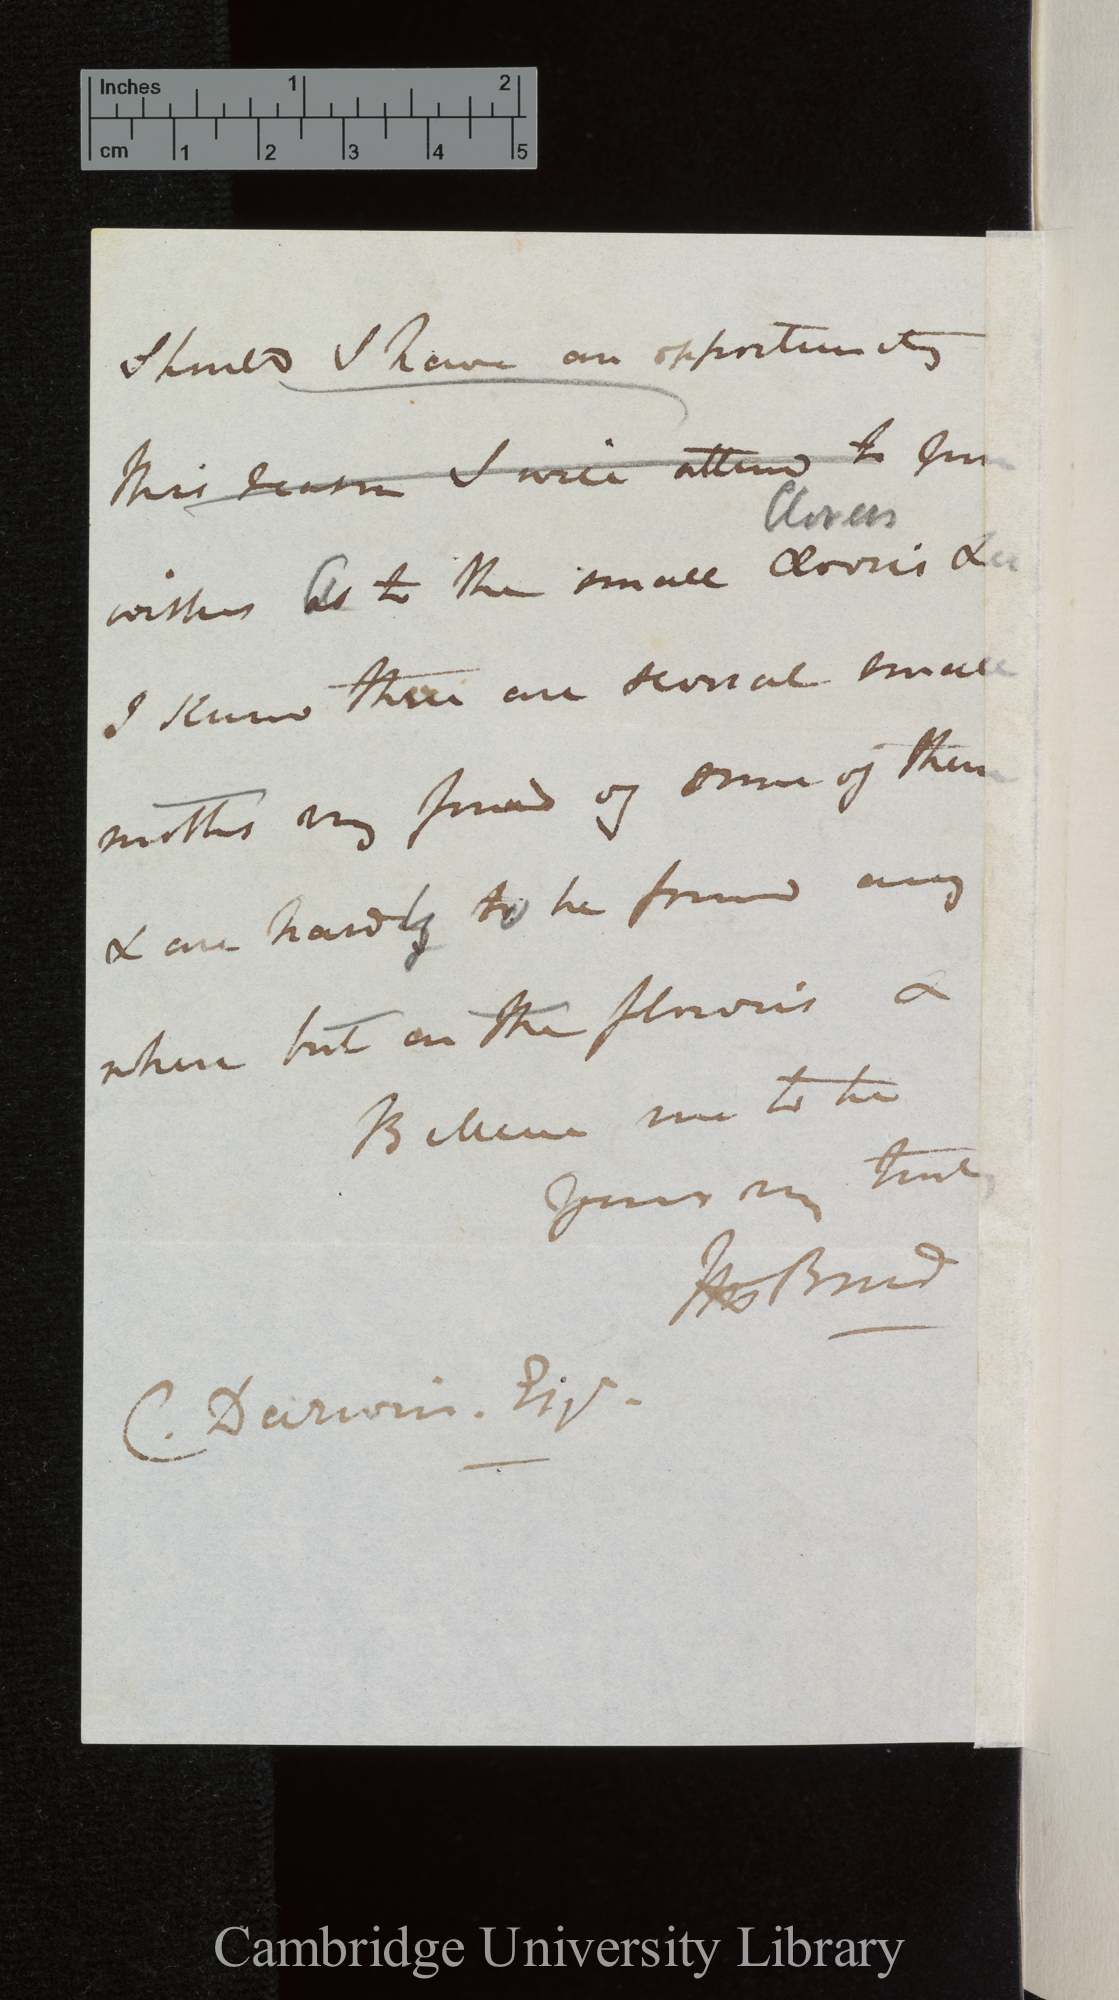 Inches 1 2
cm 1 2 3 4 5
Should I have an opportunity
this season I will attend to your
Clovers
wishes As to the small clovers &c
I know there are several small
moths very fond of some of them
& are hardly to be found any
where but on the flowers &
Believe me to be
yours very truly
Bond
C. Darwin. Esqr.
Cambridge University Library